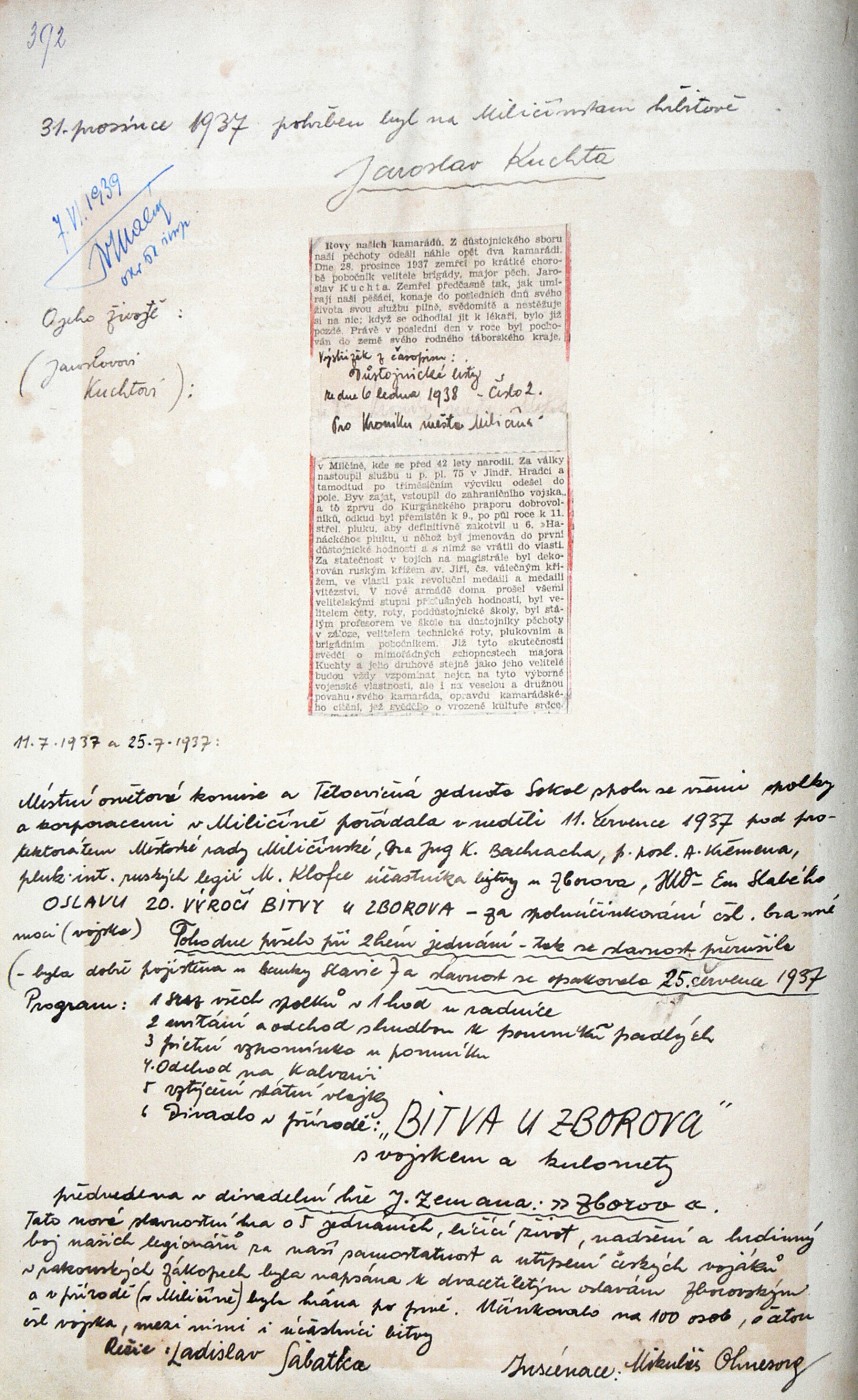 392
31. prosince 1937 pohřben byl na Miličínském hřbitově
Jaroslav Kuchta
7. VI. 1939
O jeho životě :
(Jaroslavovi
Kuchtovi ) :
Rovy našich kamarádů. Z důstojnického sboru
naší pěchoty odešli náhle opět dva kamarádi.
Dne 28. prosince 1937 zemřel po krátké choro-
bě pobočník velitele brigády, major pěch. Jaro-
slav Kuchta. Zemřel předčasně tak, jak umí-
rají naši pěšáci, konaje do posledních dnů svého
života svou službu pilně, svědomitě a nestěžuje
si na nic; když se odhodlal jít k lékaři, bylo již
pozdě. Právě v poslední den v roce byl pocho-
ván do země svého rodného táborského kraje,
Výstřižek z časopisu :
Důstojnické listy
ze dne 6 ledna 1938 - Číslo 2.
Pro Kroniku města Miličína
v Milčíně, kde se před 42 lety narodil. Za války
nastoupil službu u p. pl. 75 v Jindř. Hradci a
tamodtud po tříměsíčním výcviku odešel do
pole. Byv zajat, vstoupil do zahraničního vojska,
a to zprvu do Kurgánského praporu dobrovol-
níků, odkud byl přemístěn k 9., po půl roce k 11.
střel. pluku, aby definitivně zakotvil u 6. »Ha-
náckého« pluku, u něhož byl jmenován do první
důstojnické hodnosti a s nímž se vrátil do vlasti.
Za statečnost v bojích na magistrále byl deko-
rován ruským křížem sv. Jiří, čs. válečným kří-
žem, ve vlasti pak revoluční medailí a medailí
vítězství. V nové armádě doma prošel všemi
velitelskými stupni příslušných hodností, byl ve-
litelem čety, roty, poddůstojnické školy, byl stá-
lým profesorem ve škole na důstojníky pěchoty
v záloze, velitelem technické roty, plukovním a
brigádním pobočníkem. Již tyto skutečnosti
svědčí o mimořádných schopnostech majora
Kuchty a jeho druhové stejně jako jeho velitelé
budou vždy vzpomínat nejen na tyto výborné
vojenské vlastnosti, ale i na veselou a družnou
povahu svého kamaráda, opravdu kamarádské-
ho cítění, jež svědčilo o vrozené kultuře srdce.
11.7.1937 a 25.7.1937:
Místní osvětová komise a Tělocvičná jednota Sokol spolu se všemi spolky
a korporacemi v Miličíně pořádala v neděli 11. července 1937 pod pro-
tektorátem Městské rady Miličínské, Dra Ing K. Bachracha, p. posl. A. Křemena,
pluk. int. ruských legií M. Klofce účastníka bitvy u Zborova, MUDr Em Slabého
OSLAVU 20. VÝROČÍ BITVY U ZBOROVA - za spoluúčinkování čsl. branné
moci (vojska) Toho dne pršelo při 2hém jednání - tak se slavnost přerušila
(- byla dobře pojištěna u banky Slavie) a slavnost se opakovala 25. července 1937
Program: 1 Sraz všech spolků v 1 hod u radnice
2 uvítání a odchod s hudbou k pomníku padlých
3 pietní vzpomínka u pomníku
4. Odchod na Kalvarii
5 vztyčení státní vlajky
6 Divadlo v přírodě: „BITVA U ZBOROVA"
s vojskem a kulomety
předvedena v divadelní hře J. Zemana: » Zborov «.
Tato nová slavnostní hra o 5 jednáních, líčící život, nadšení a hrdinný
boj našich legionářů za naši samostatnost a utrpení českých vojáků
v rakouských zákopech byla napsána k dvacetiletým oslavám zborovským
a v přírodě (v Miličíně) byla hrána po prvé. Účinkovalo na 100 osob, s četou
čsl vojska, mezi nimi i účastníci bitvy
Režie: Ladislav Sabatka
Inscénace: Mikuláš Ohnesorg